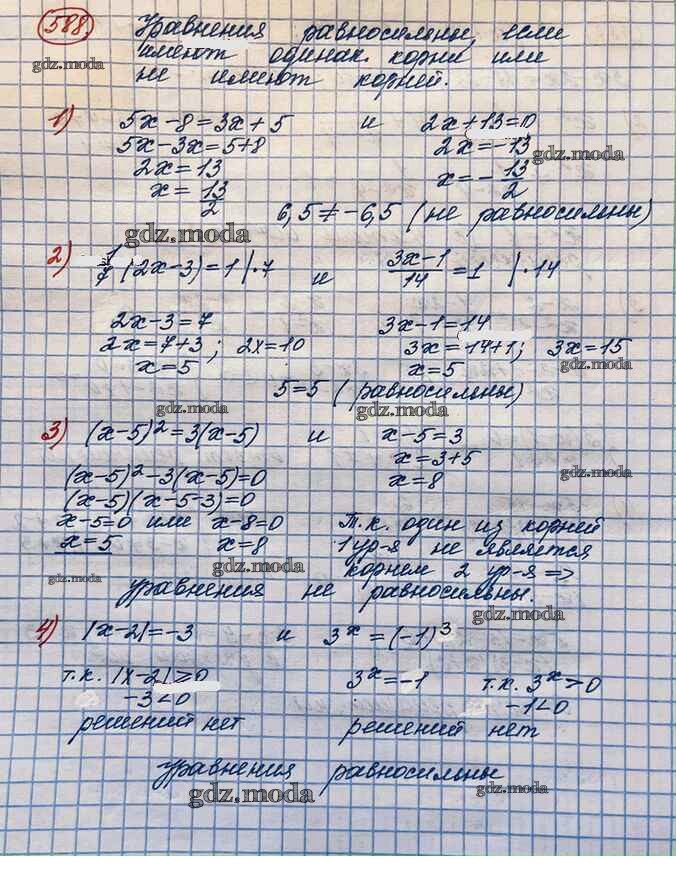 588.
Уравнения равносильны, если
имеют одинак. корни или
не имеют корней.
gdz.moda
1) 5x-8=3x+5 и 2x+13=0
5x-3x=5+8 2x=-13
2x=13 x=-13/2
x=13/2
gdz.moda
6,5≠-6,5 (не равносильны)
gdz.moda
2) 1/7 (2x-3)=1 |·7 и (3x-1)/14=1 |·14
2x-3=7 3x-1=14
2x=7+3; 2x=10 3x=14+1; 3x=15
x=5 x=5
gdz.moda
5=5 (равносильны)
gdz.moda gdz.moda
3) (x-5)²=3(x-5) и x-5=3
x=3+5
(x-5)²-3(x-5)=0 x=8
gdz.moda
(x-5)(x-5-3)=0
x-5=0 или x-8=0 Т.к. один из корней
x=5 x=8 1 ур-я не является
корнем 2 ур-я =>
gdz.moda
уравнения не равносильны.
gdz.moda
4) |x-2|=-3 и 3ˣ=(-1)³
т.к. |x-2|≥0 3ˣ=-1 т.к. 3ˣ>0
-3<0 -1<0
решений нет решений нет
уравнения равносильны
gdz.moda gdz.moda